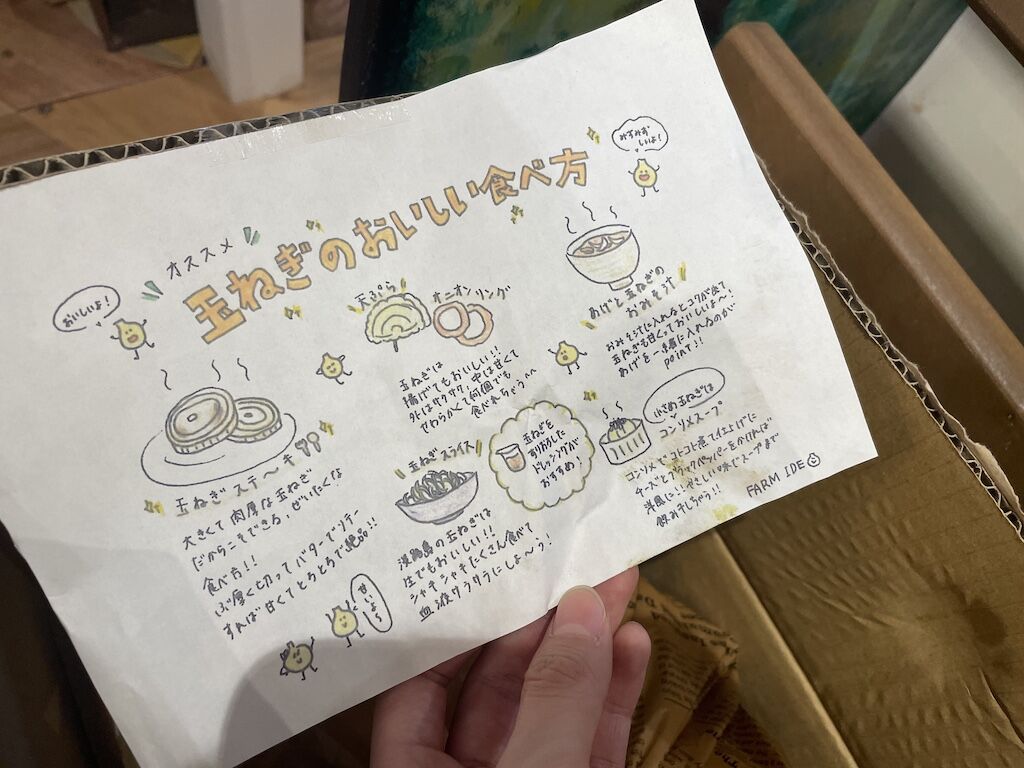 オススメ
玉ねぎのおいしい食べ方
おいしいよ!
みずみず
しいよ!
玉ねぎステ〜キ
大きくて肉厚な玉ねぎ
だからこそできる、ぜいたくな
食べ方!!
ぶ厚く切ってバターでソテー
すれば甘くてとろとろで絶品!!
甘いよ〜
天ぷら
オニオンリング
玉ねぎは
揚げてもおいしい!!
外はサクサク、中は甘くて
やわらかくて何個でも
食べれちゃう^^
玉ねぎスライス
淡路島の玉ねぎは
生でもおいしい!!
シャキシャキたくさん食べて
血液サラサラにしま〜う!
玉ねぎを
すりおろした
ドレッシングが
おすすめ!
あげと玉ねぎの
おみそ汁
おみそ汁に入れるとコクが出て、
玉ねぎも甘くっておいしいよ〜、
あげを一緒に入れるのが
point!!
小さめ玉ねぎは
コンソメスープ
コンソメでコトコト煮て仕上げに
チーズとブラックペッパーをかければ
洋風に!!やさしい味でスープまで
飲み干しちゃう!!
FARM IDE